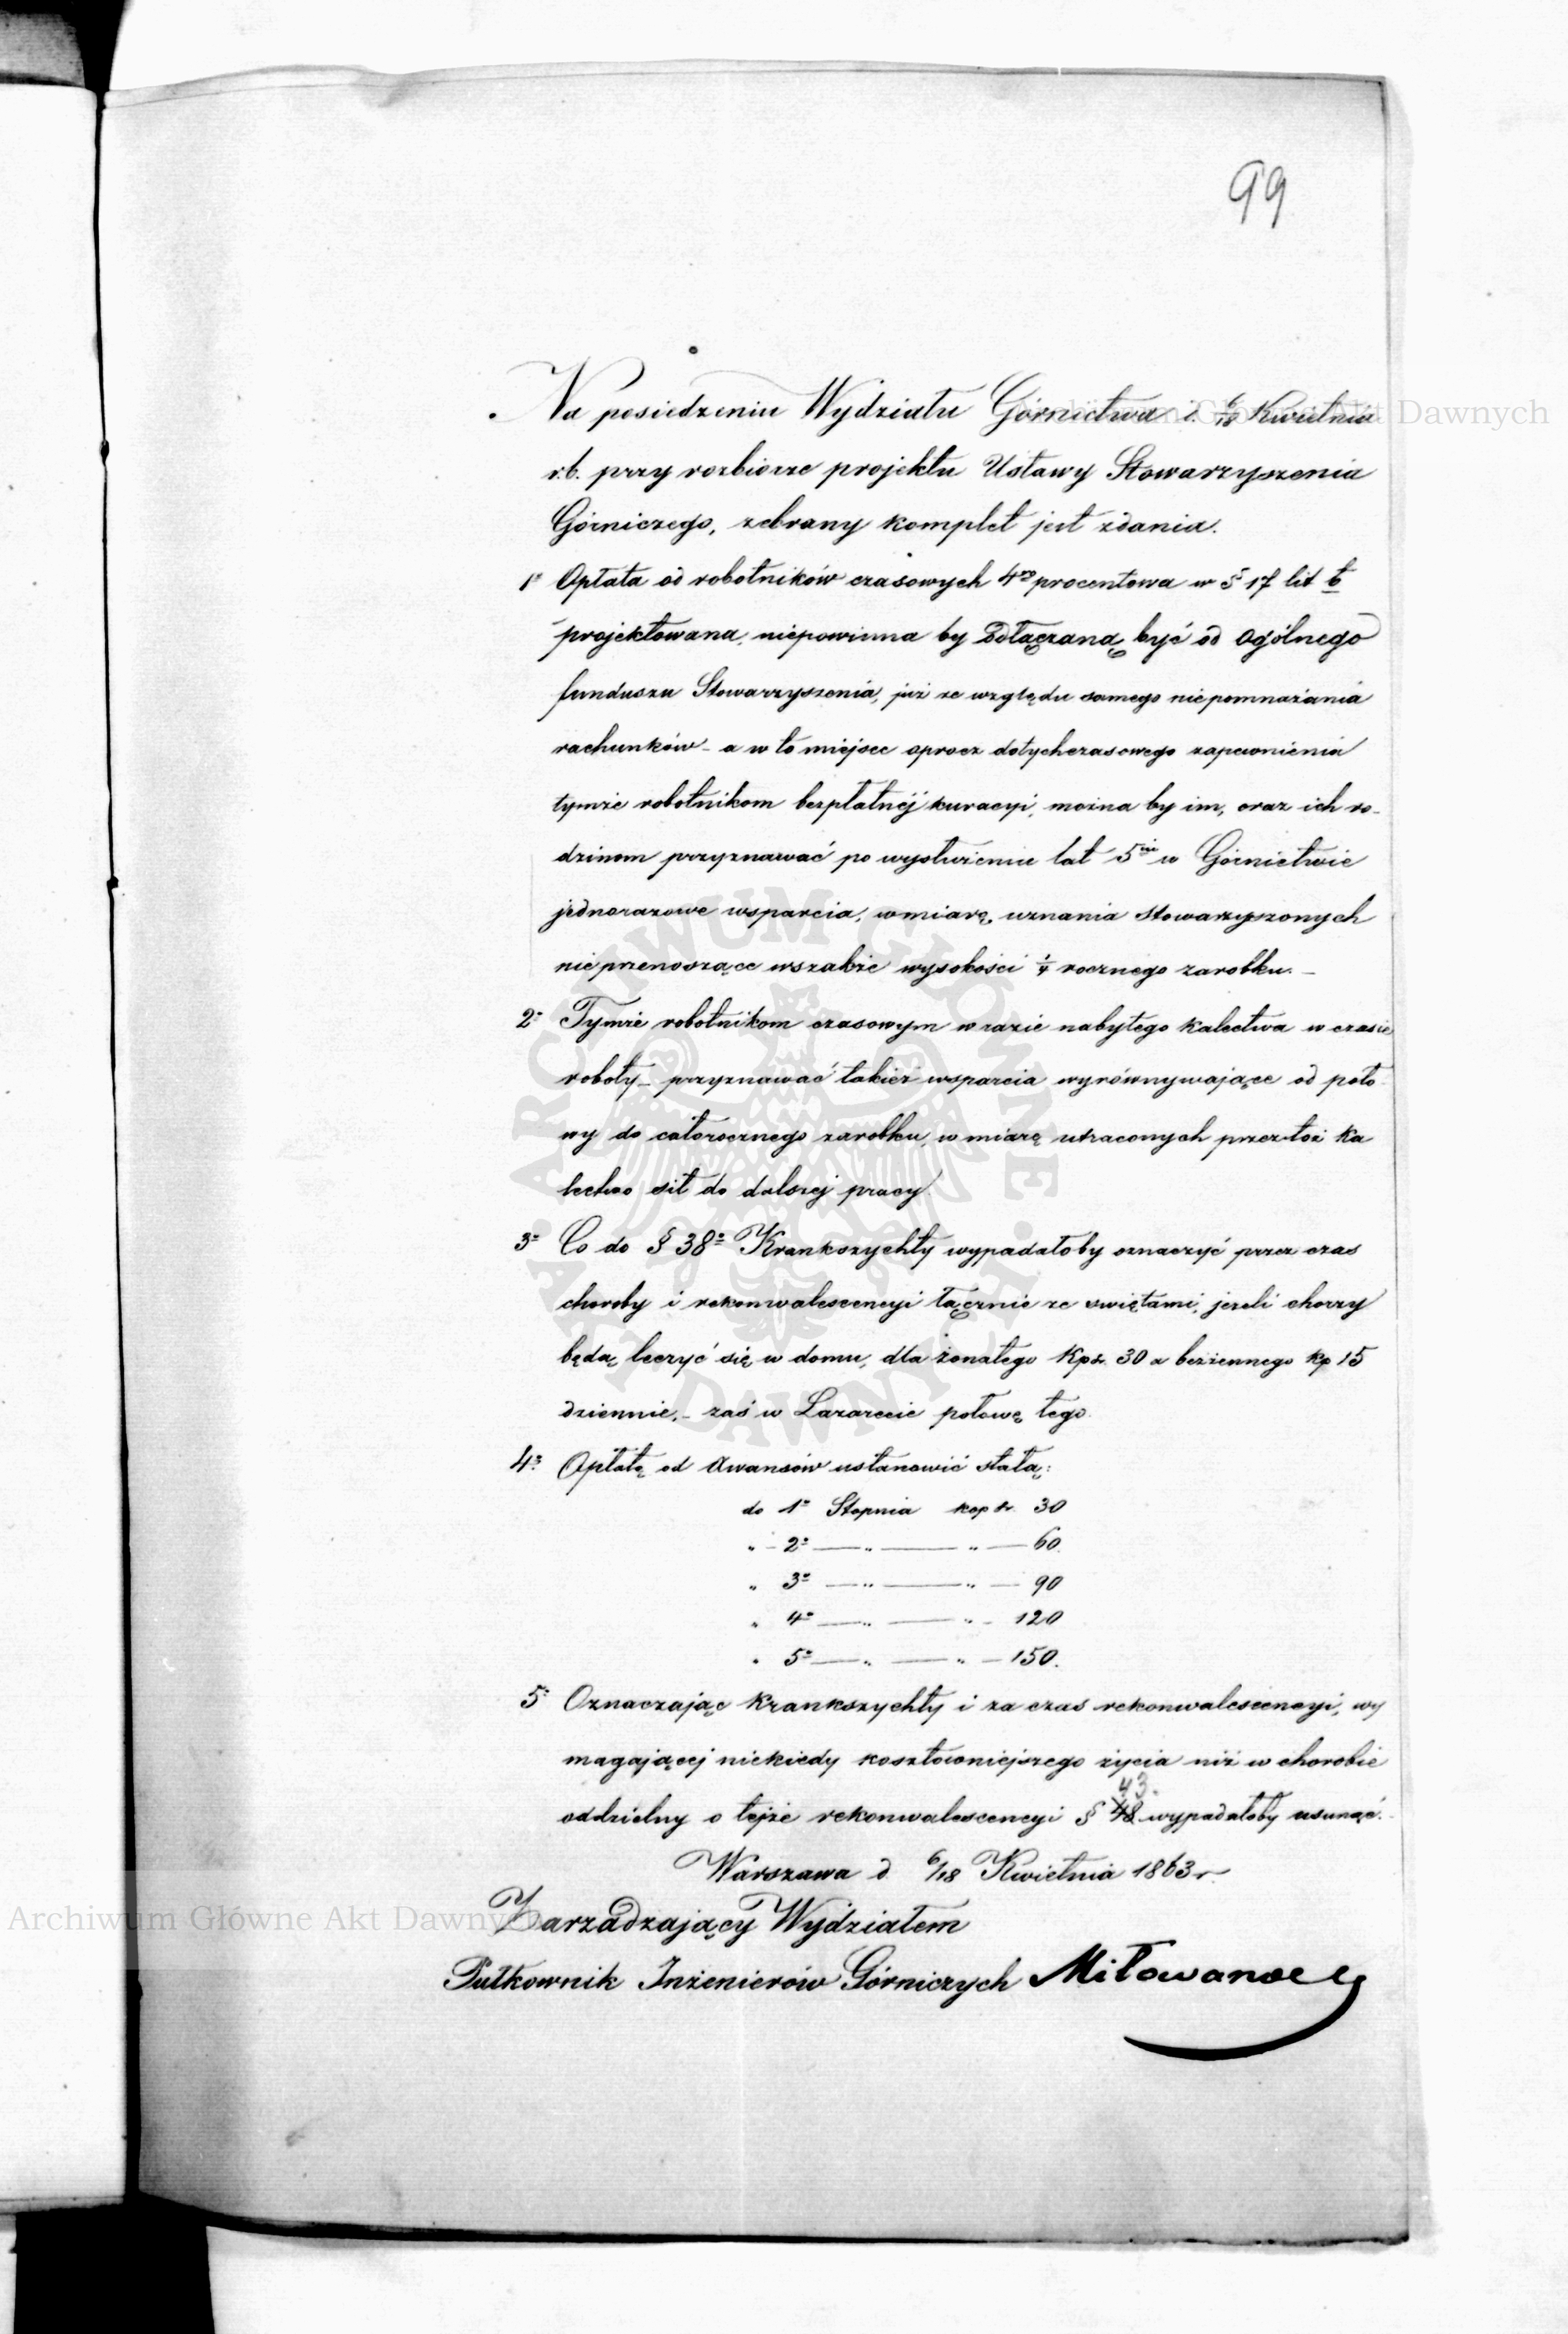 99
Na posiedzeniu Wydziału Górnictwa d. 6/18 Kwietnia
r.b. przy rozbiorze projektu Ustawy Stowarzyszenia
Górniczego, zebrany komplet jest zdania.
1o Opłata od robotników czasowych 4ro procentowa w § 17 lit b
projektowana, niepowinna by dołączaną być od Ogólnego
funduszu Stowarzyszenia, już ze względu samego niepomnażania
rachunków - a w to miejsce oprocz dotychczasowego zapewnienia
tymże robotnikom bezpłatnéj kuracyi, można by im, oraz ich ro-
dzinom przyznawać po wysłużeniu lat 5iu w Górnictwie
jednorazowe wsparcia, wmiarę uznania Stowarzyszonych
nieprzenoszące wszakże wysokości 1/4 rocznego zarobku. -
2o Tymże robotnikom czasowym w razie nabytego Kalectwa w czasie
roboty - przyznawać takież wsparcia wyrównywające od poło-
wy do całorocznego zarobku, w miarę utraconych przez toż Ka
lectwo sił do dalszej pracy.
3o Co do § 38o Krankszychty wypadałoby oznaczyć przez czas
choroby i rekonwalescencyi łącznie ze swiętami, jezeli chorzy
będą leczyć się w domu, dla żonatego Kps. 30 a bezżennego kp 15
dziennie, - zaś w Lazarecie połowę tego.
4o Opłatę od Awansów ustanowić stałą:
do 1o Stopnia kop sr. 30
" - 2o — " — " — 60.
" 3o — " — " — 90
" 4o — " — " - 120
" 5o — " — " — 150.
5o Oznaczając Krankszychty i za czas rekonwalescencyi, wy
magającej niekiedy kosztowniejszego życia niż w chorobie
43.
oddzielny o tejże rekonwalescencyi § 48 wypadałoby usunąć. -
Warszawa d 6/18 Kwietnia 1863 r.
Zarządzający Wydziałem
Pułkownik Inżenierów Górniczych Miłowanow
Archiwum Główne Akt Dawnych
Archiwum Główne Akt Dawnych
ARCHIWUM GŁÓWNE
AKT DAWNYCH